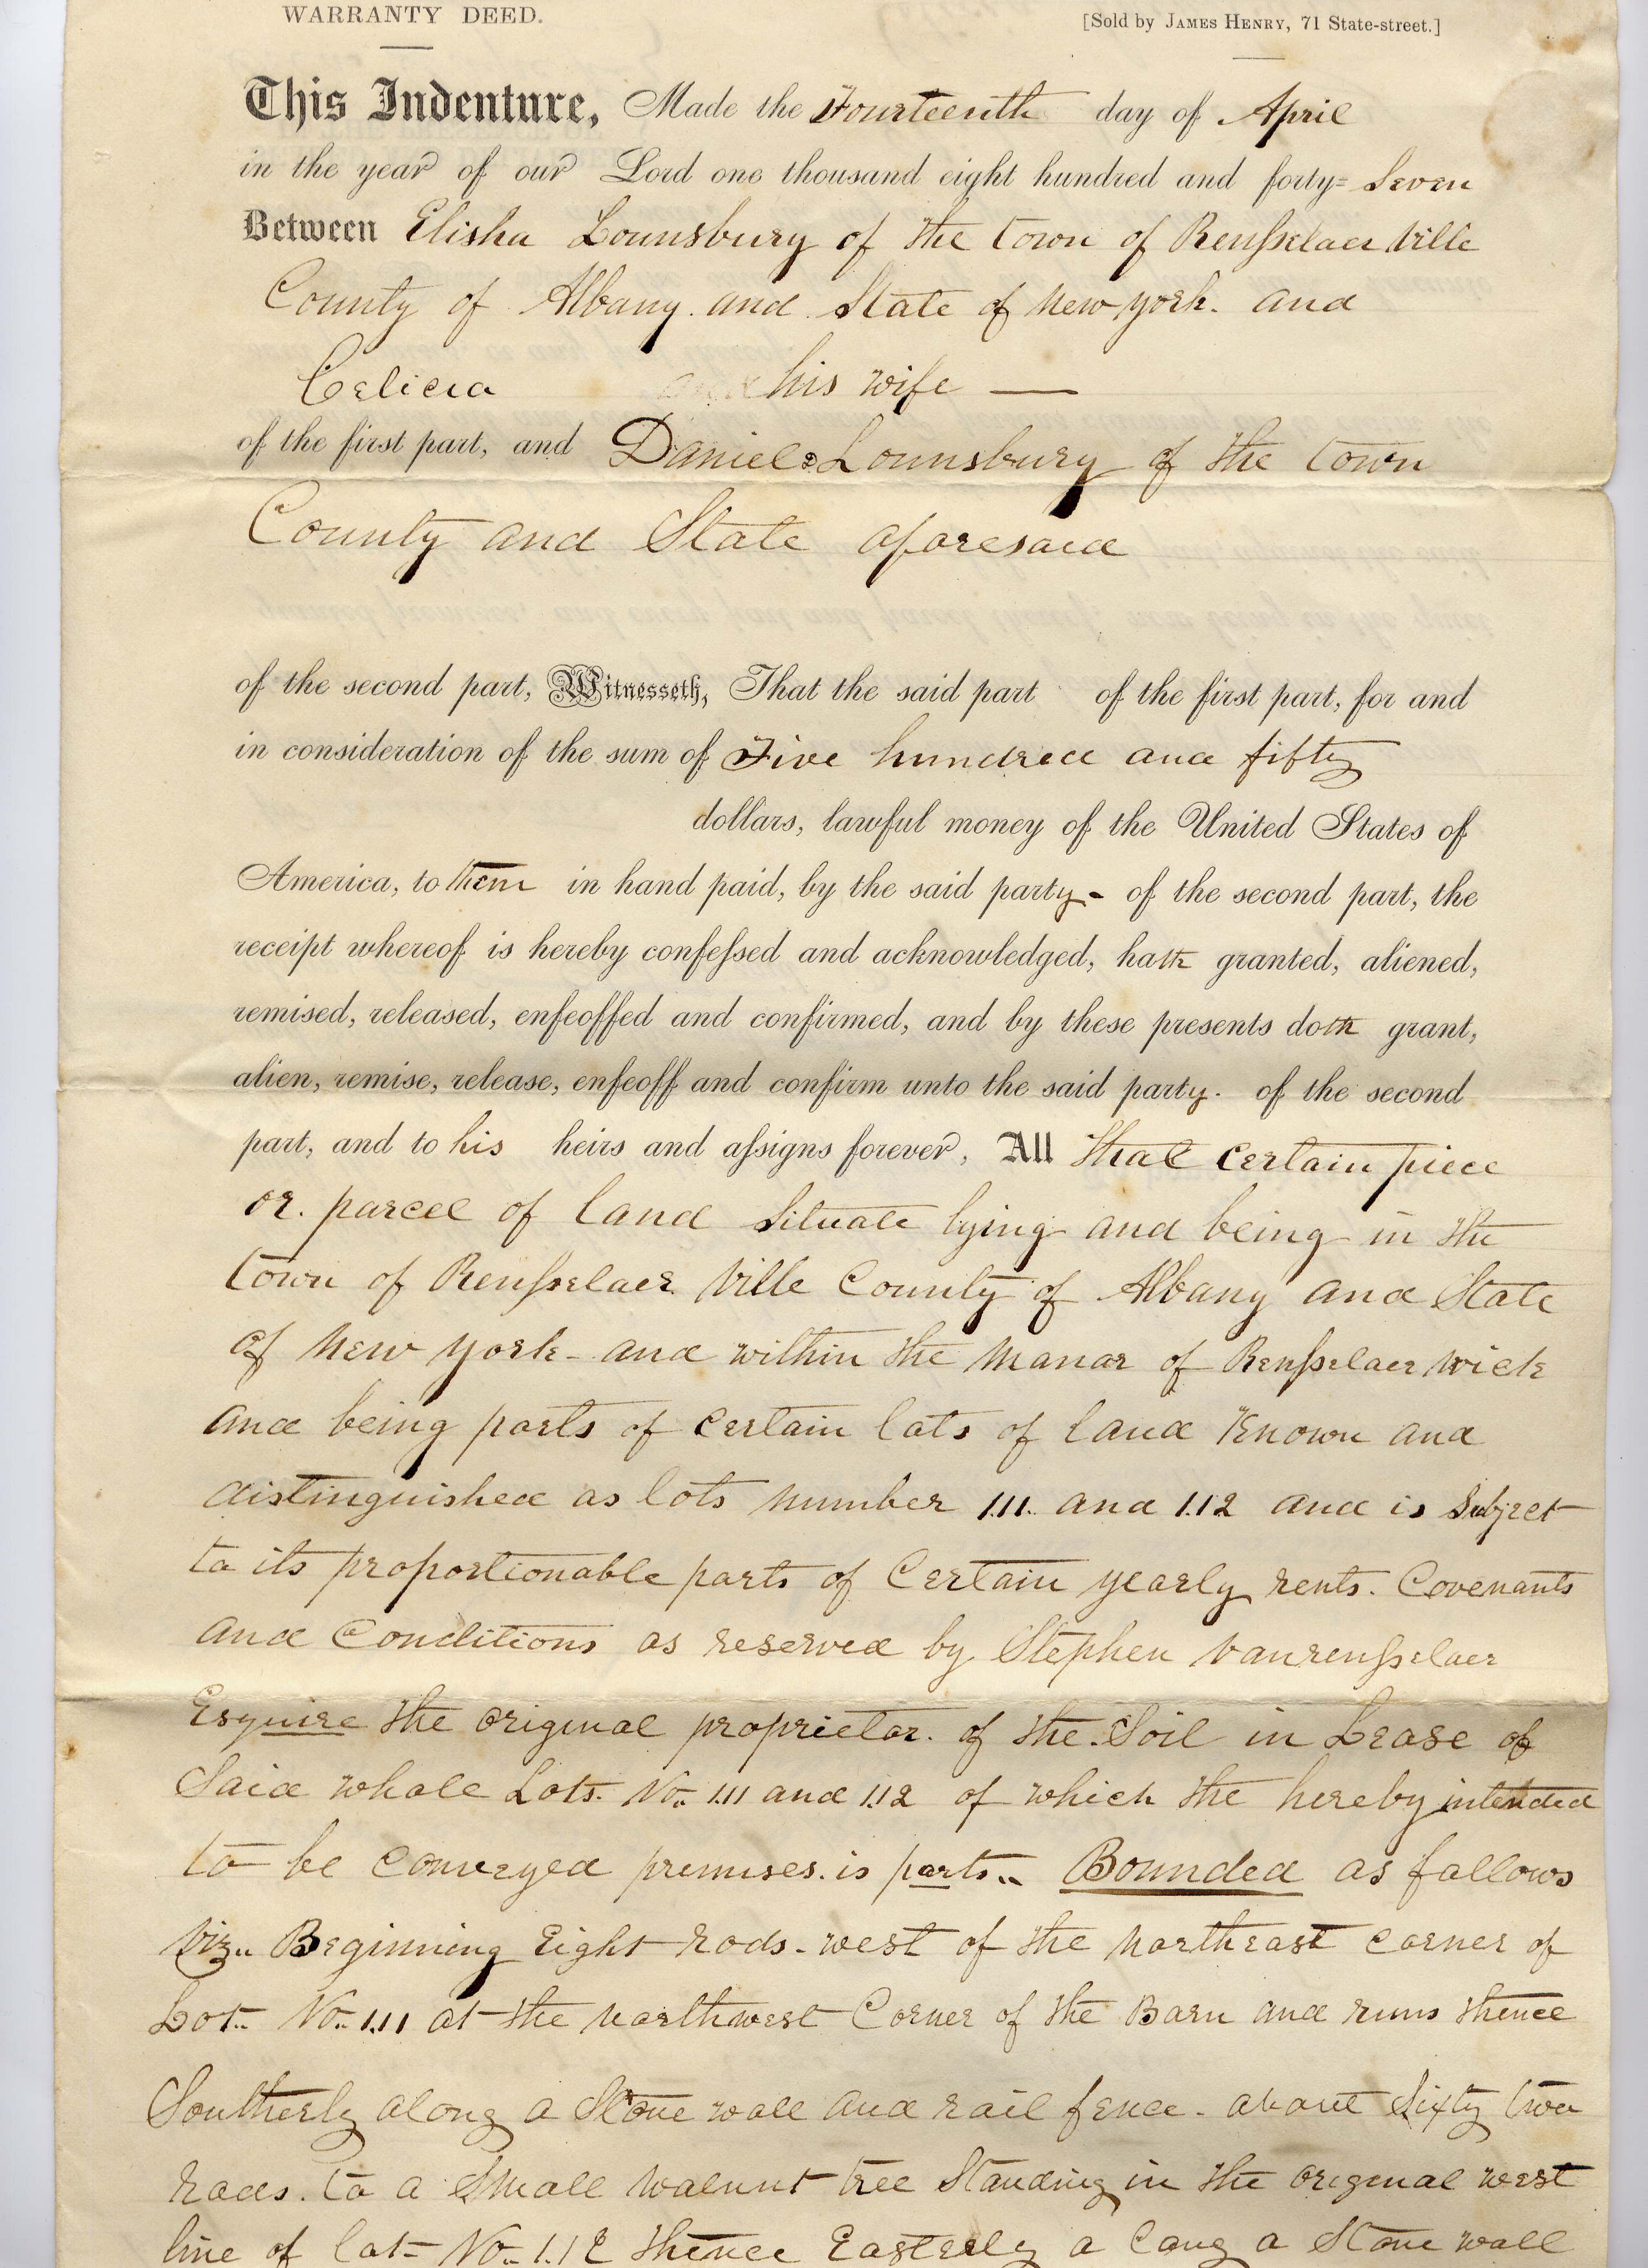 WARRANTY DEED.
[Sold by JAMES HENRY, 71 State-street.]
This Indenture, Made the Fourteenth day of April
in the year of our Lord one thousand eight hundred and forty= Seven
Between Elisha Lounsbury of the town of Rensselaer Ville
County of Albany and State of New York. and
Celicia his wife —
of the first part, and Daniel Lounsbury of the town
County and State aforesaid
of the second part, Witnesseth, That the said part of the first part, for and
in consideration of the sum of Five hundred and fifty
dollars, lawful money of the United States of
America, to them in hand paid, by the said party - of the second part, the
receipt whereof is hereby confessed and acknowledged, hath granted, aliened,
remised, released, enfeoffed and confirmed, and by these presents doth grant,
alien, remise, release, enfeoff and confirm unto the said party. of the second
part, and to his heirs and assigns forever, All that certain piece
or. parcel of land Situate lying and being in the
town of Rensselaer Ville County of Albany and State
of New York - and within the Manor of Rensselaer wick
and being parts of certain lots of land Known and
distinguished as lots number 111. and 112 and is Subject
to its proportionable parts of Certain yearly rents. Covenants
and Conditions as reserved by Stephen Vanrensselaer
Esquire the original proprietor. of the Soil in Lease of
Said whole Lots. No. 111 and 112 of which the hereby intended
to be Conveyed premises. is parts.. Bounded as follows
Viz.. Beginning Eight rods. west of the Northeast Corner of
Lot.. No.. 111 at the Northwest Corner of the Barn and runs thence
Southerly along a Stone wall and rail fence. about Sixty two
rods. to a Small Walnut tree Standing in the original west
line of lot= No.. 112 thence Easterly a long a Stone wall